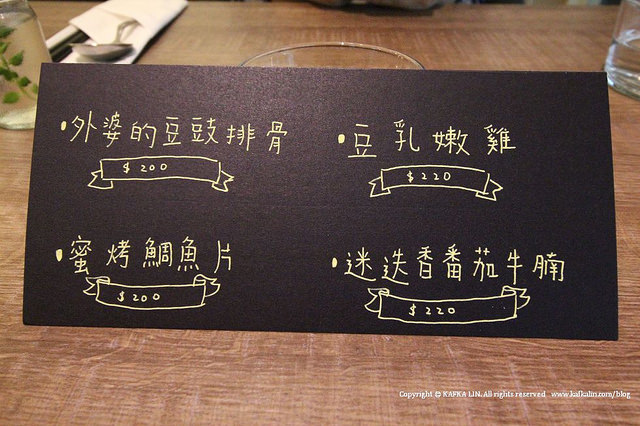 •外婆的豆豉排骨
$200
•豆乳嫩雞
$220
•蜜烤鯛魚片
$200
•迷迭香番茄牛腩
$220
Copyright © KAFKA LIN. All rights reserved www.kafkalin.com/blog